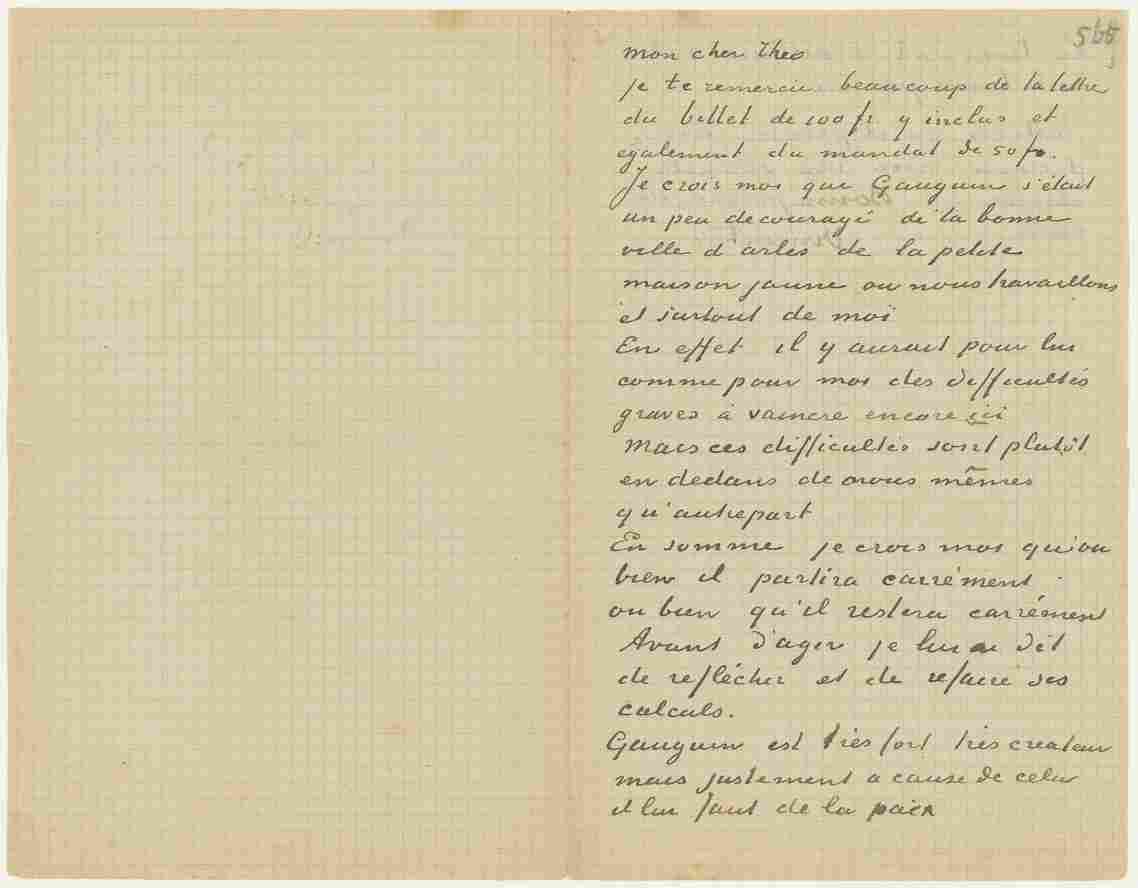 565
mon cher Theo
je te remercie beaucoup de ta lettre
du billet de 100 fr. y inclus et
egalement du mandat de 50 fr.
Je crois moi que Gauguin s'était
un peu decouragé de la bonne
ville d'arles de la petite
maison jaune ou nous travaillons
et surtout de moi
En effet il y aurait pour lui
comme pour moi des difficultés
graves à vaincre encore ici
Mais ces difficultés sont plutôt
en dedans de nous mêmes
qu'autrepart
En somme je crois moi qu'ou
bien il partira carrément
ou bien qu'il restera carrément
Avant d'agir je lui ai dit
de reflécher et de refaire ses
calculs.
Gauguin est très fort très createur
mais justement a cause de cela
il lui faut de la paix